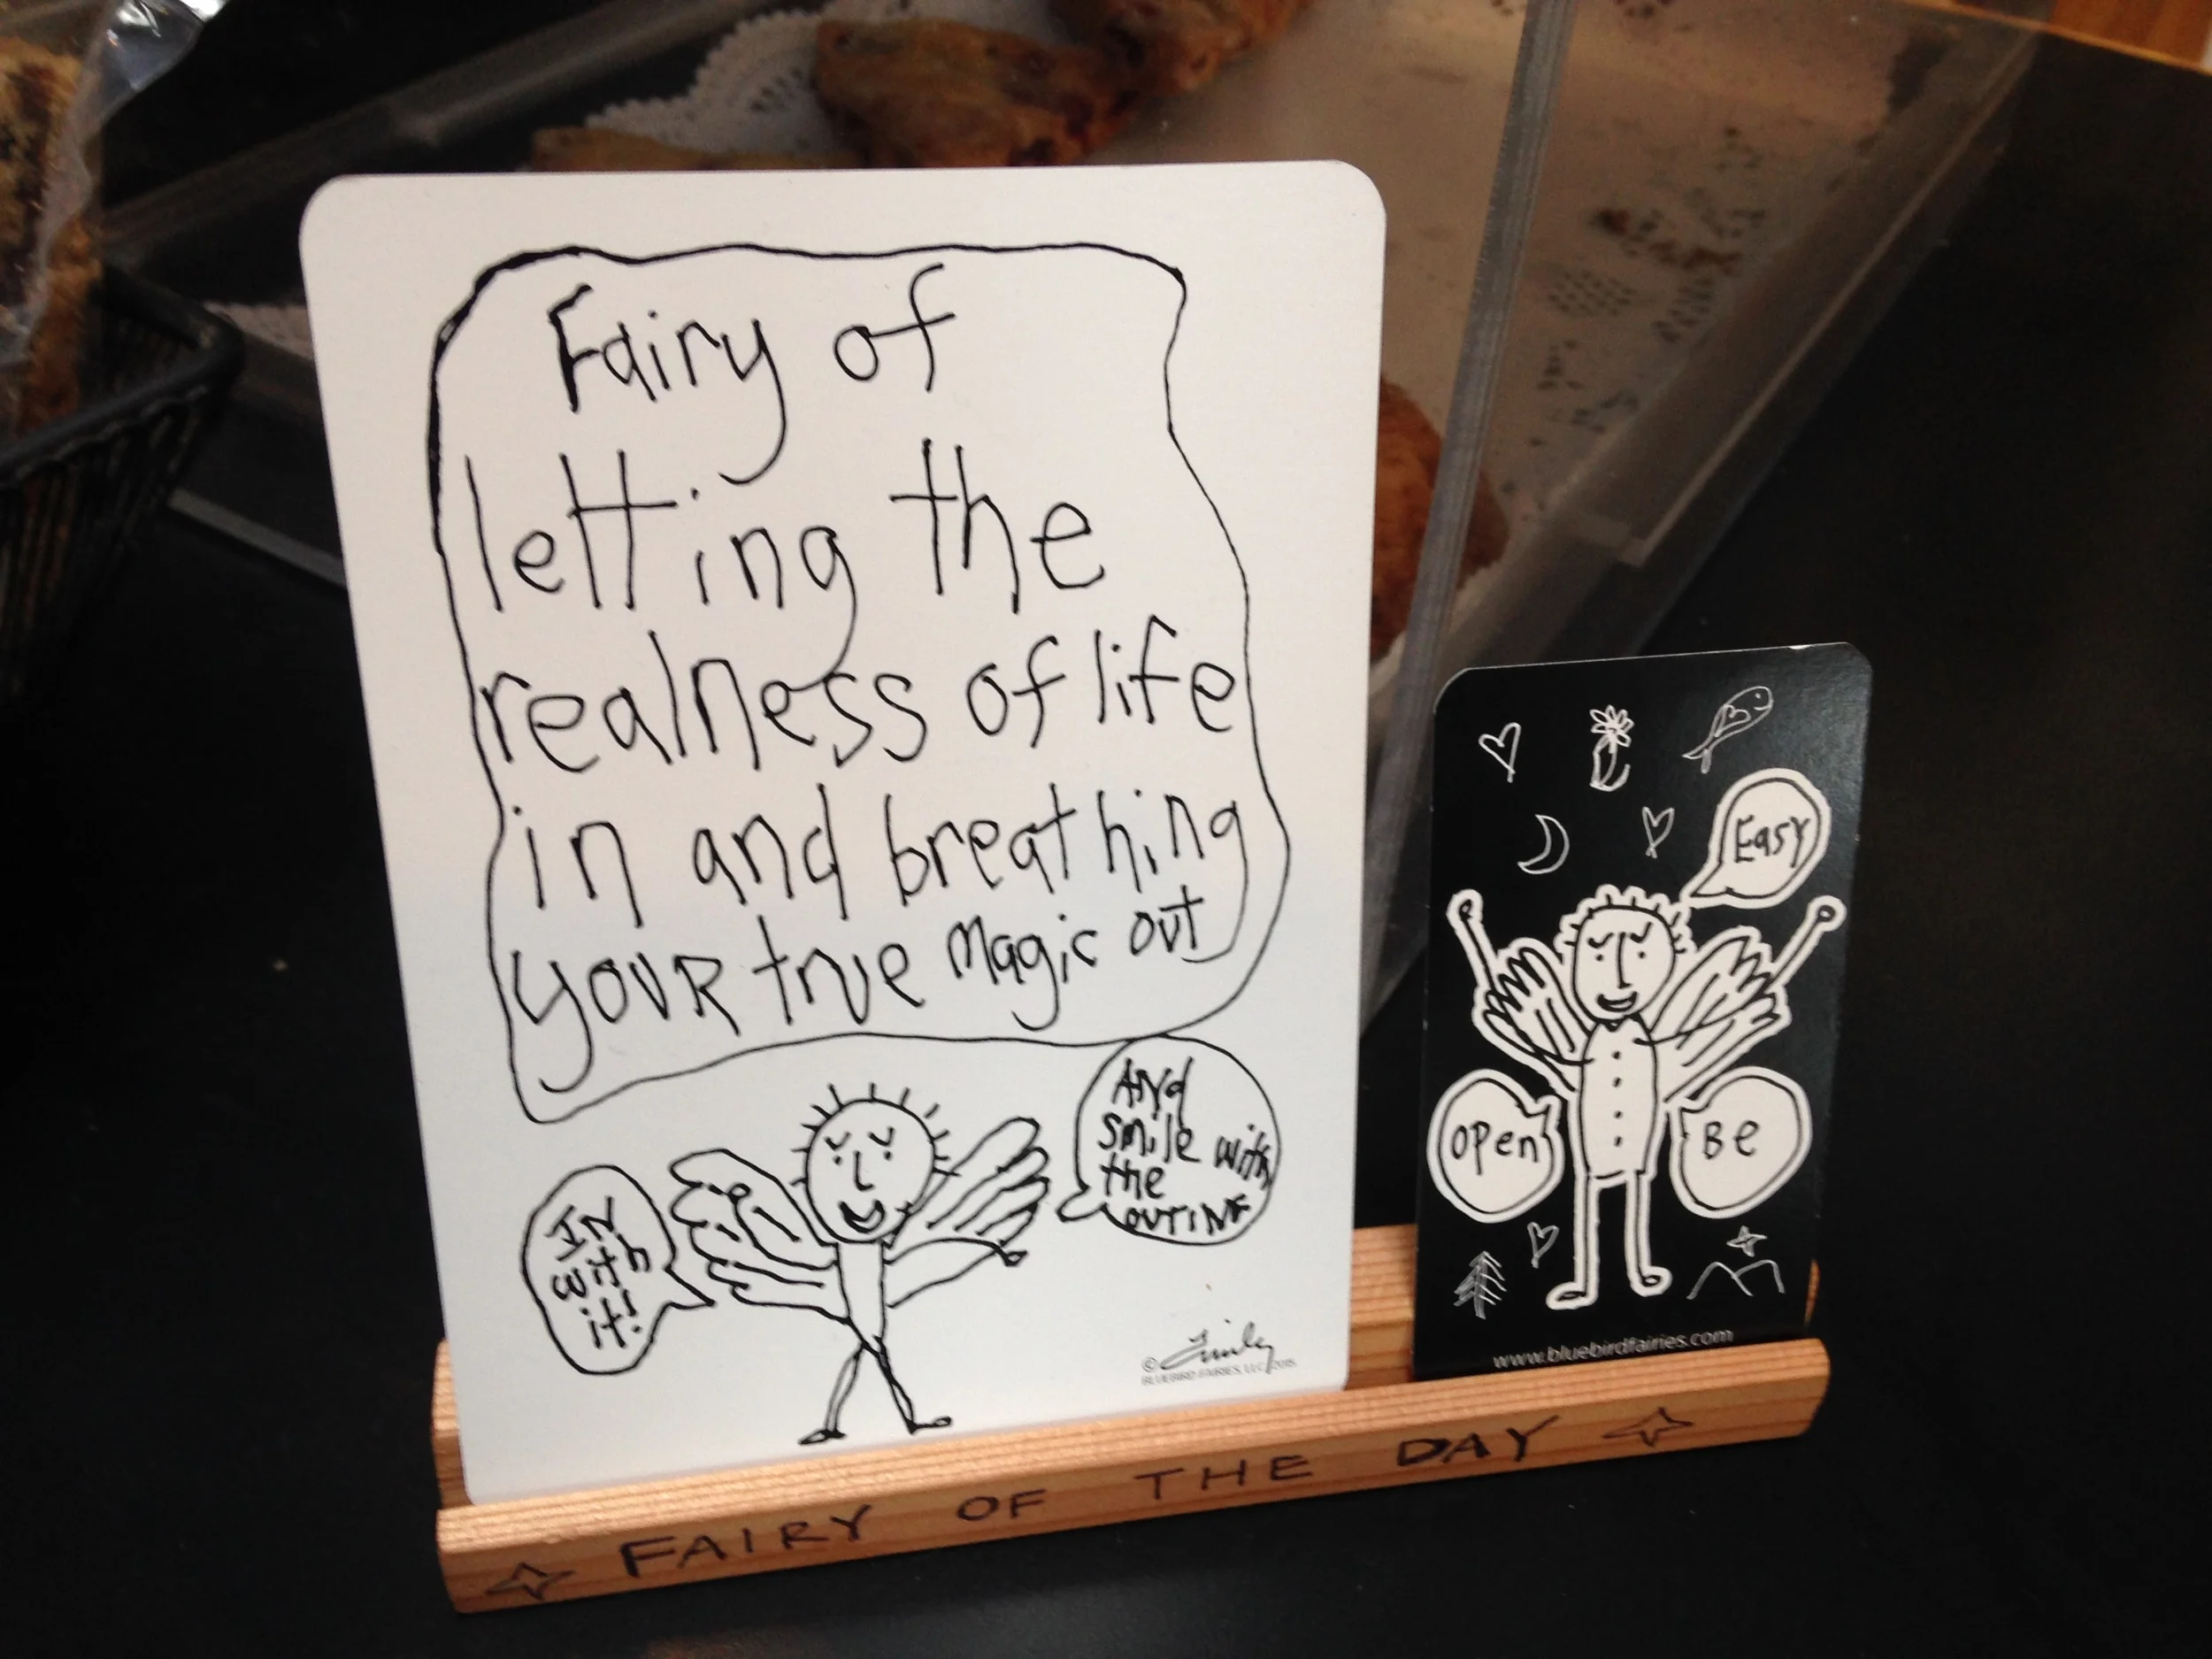 Fairy of
letting the
realness of life
in and breathing
your true magic out
IN
with
it!
And
smile with
the
© Emily
BLUEBIRD FAIRIES, LLC 2015
Easy
open
Be
www.bluebirdfairies.com
FAIRY OF THE DAY